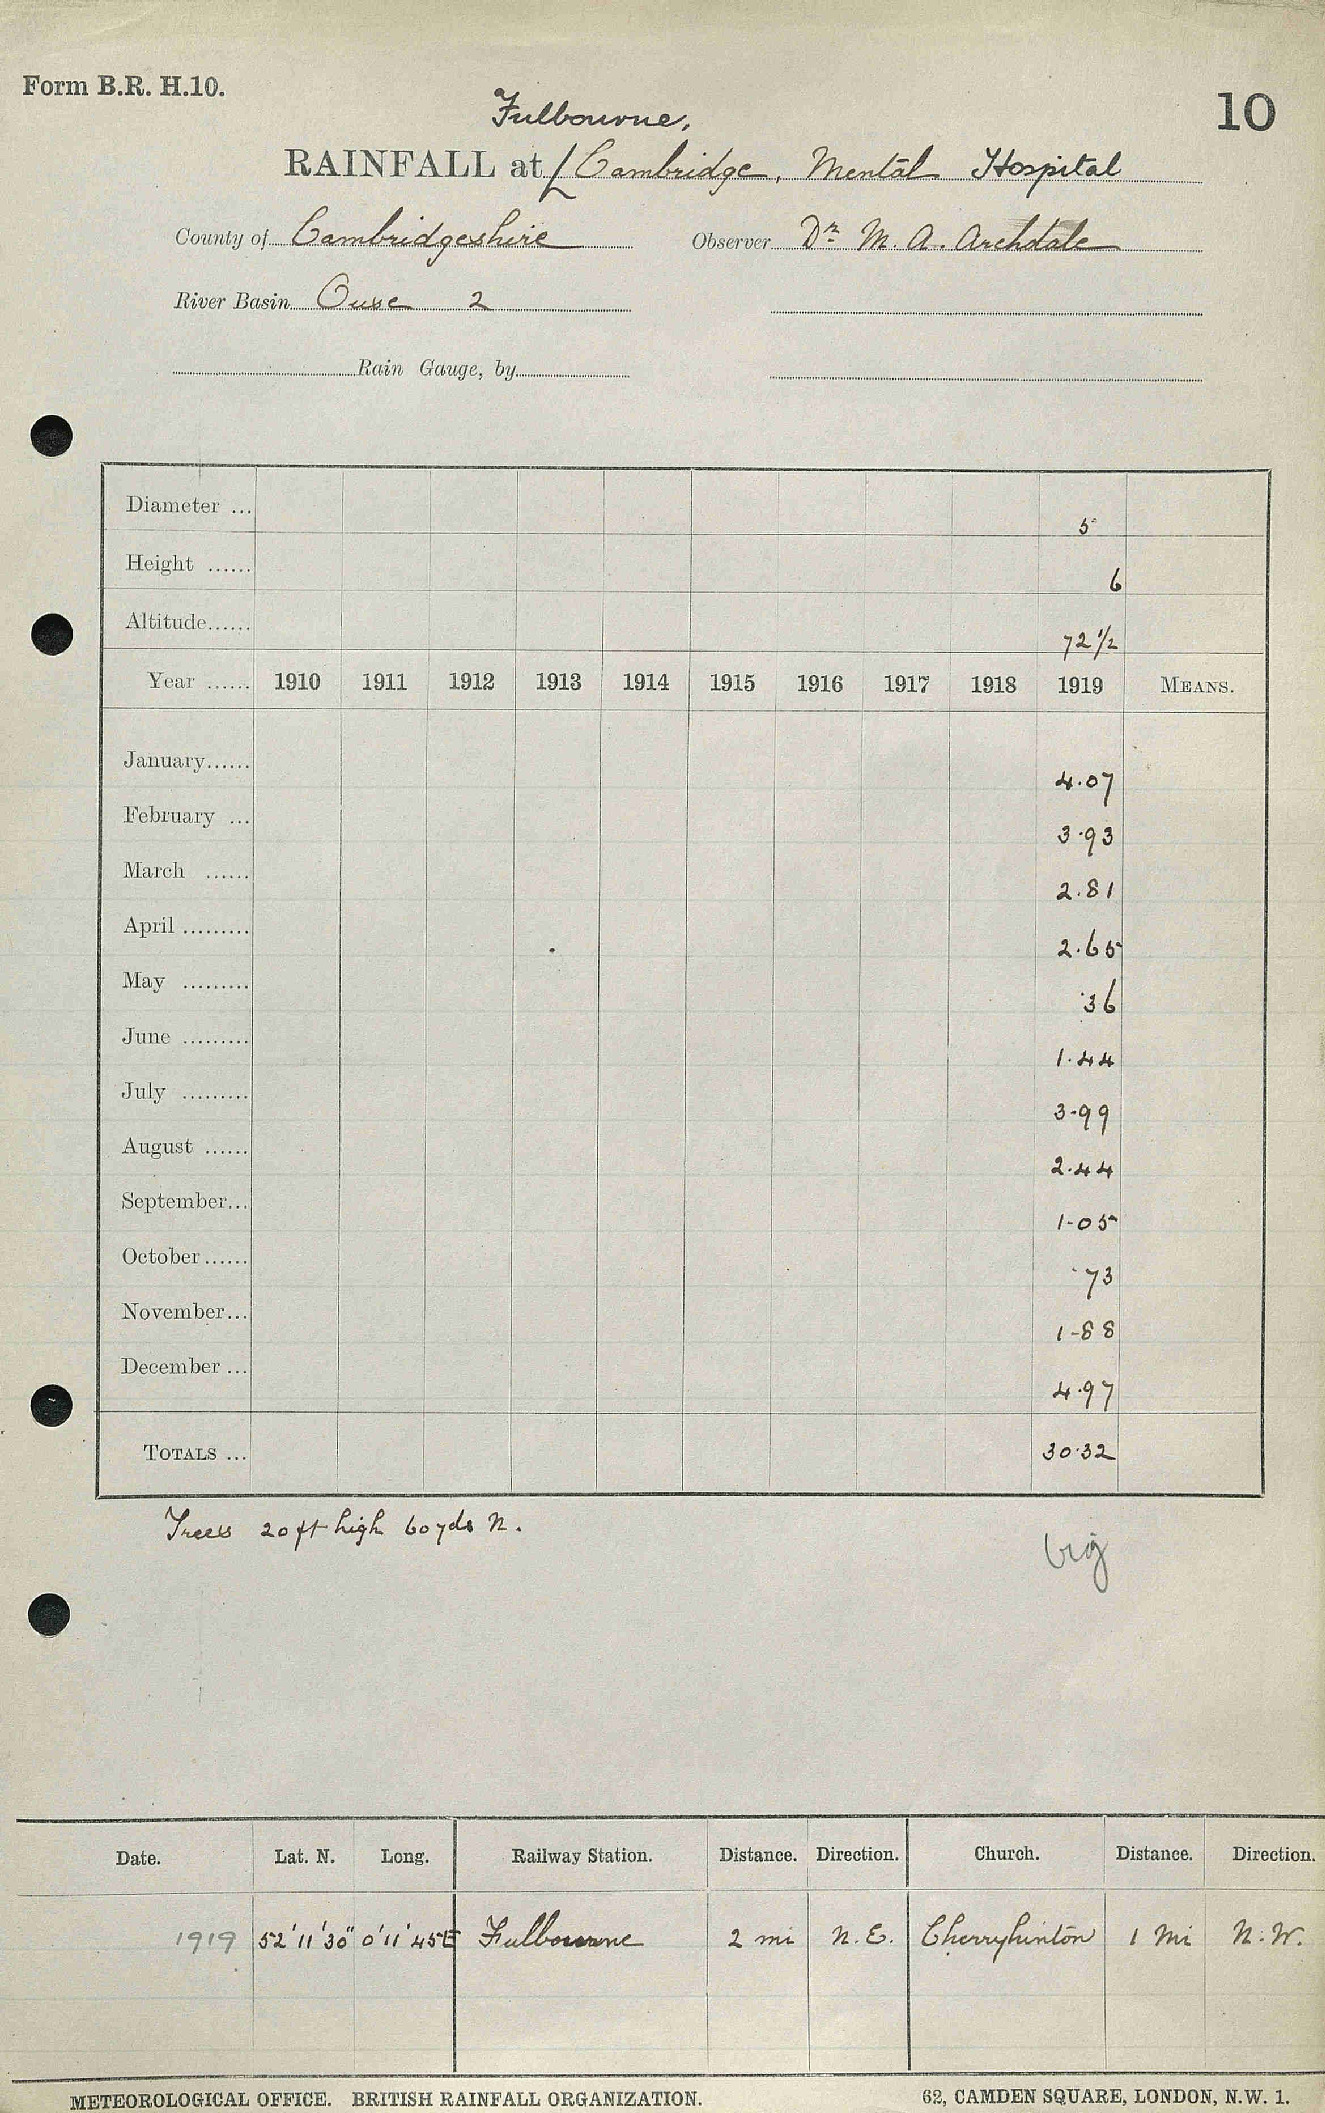 Form B.R. H.10.
10
Fulbourne,
RAINFALL at Cambridge, Mental Hospital
County of Cambridgeshire Observer Dr. M. A. Archdale
River Basin Ouse 2
Rain Gauge, by
Diameter ... 5
Height ...... 6
Altitude...... 72 1/2
Year ...... 1910 1911 1912 1913 1914 1915 1916 1917 1918 1919 MEANS.
January...... 4.07
February ... 3.93
March ...... 2.81
April ......... 2.65
May ......... .36
June ......... 1.44
July ......... 3.99
August ...... 2.44
September... 1.05
October...... .73
November... 1.88
December ... 4.97
TOTALS ... 30.32
Trees 20 ft high 60 yds N.
Date. Lat. N. Long. Railway Station. Distance. Direction. Church. Distance. Direction.
1919 52' 11' 30" 0' 11' 45 E Fulbourne 2 mi N.E. Cherryhinton 1 Mi N.W.
METEOROLOGICAL OFFICE. BRITISH RAINFALL ORGANIZATION. 62, CAMDEN SQUARE, LONDON, N.W. 1.